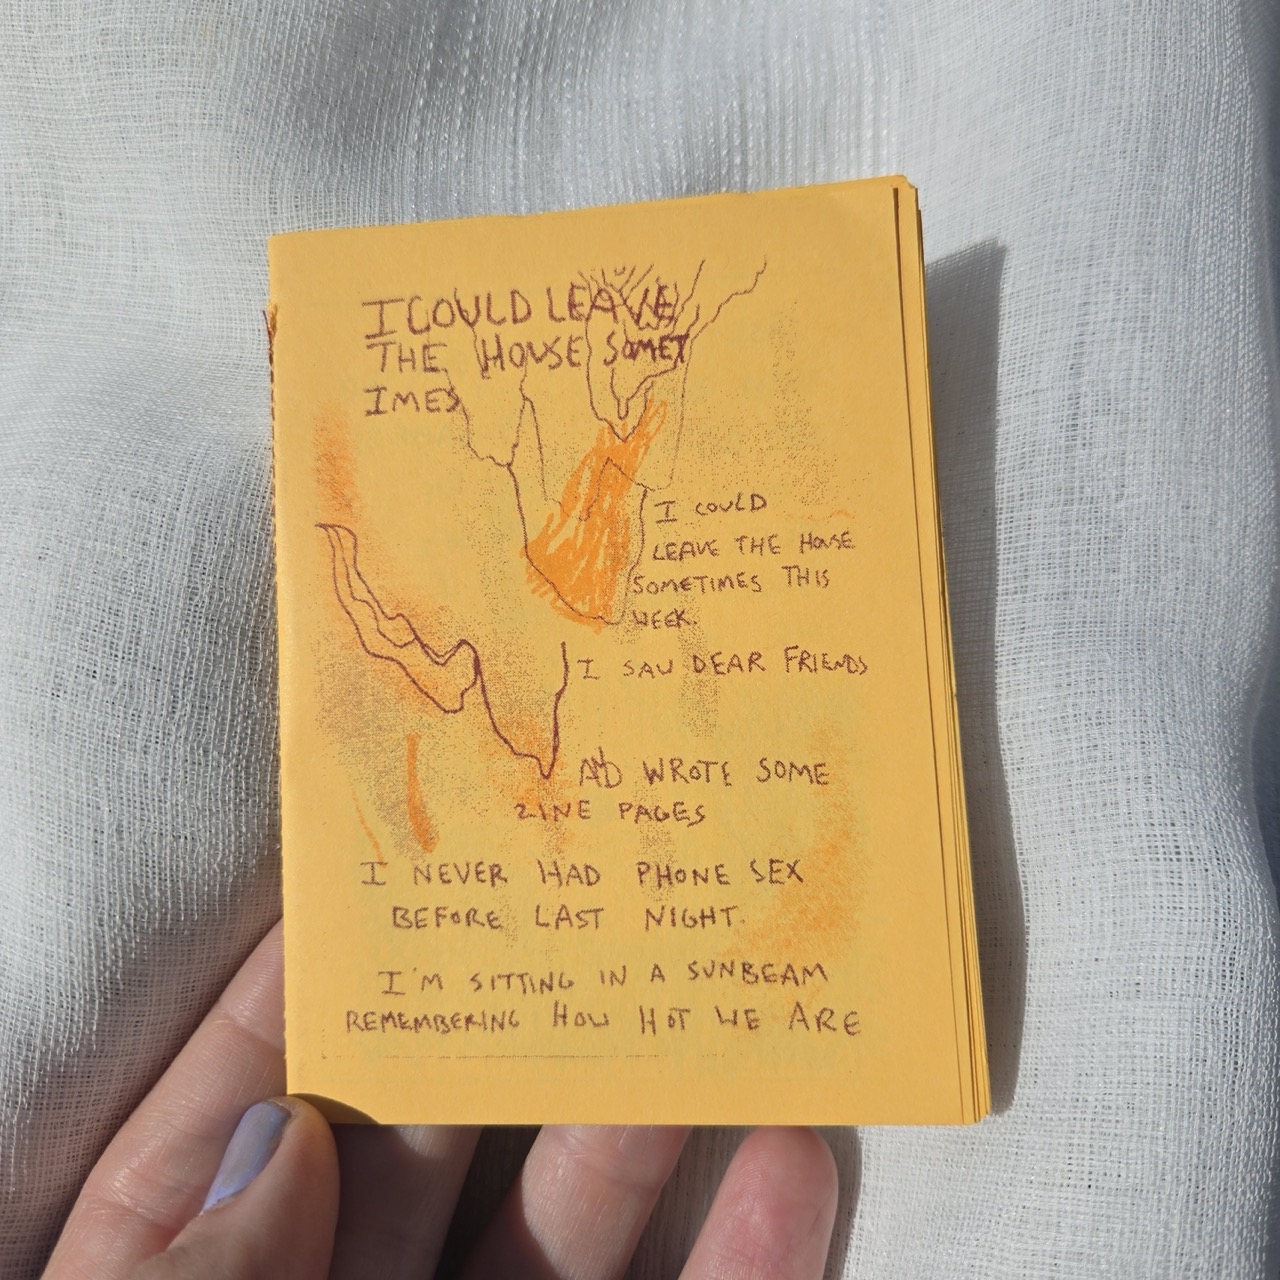 I COULD LEAVE
THE HOUSE SOMET
IMES
I COULD
LEAVE THE HOUSE
SOMETIMES THIS
WEEK.
I SAW DEAR FRIENDS
AND WROTE SOME
ZINE PAGES
I NEVER HAD PHONE SEX
BEFORE LAST NIGHT.
I'M SITTING IN A SUNBEAM
REMEMBERING HOW HOT WE ARE